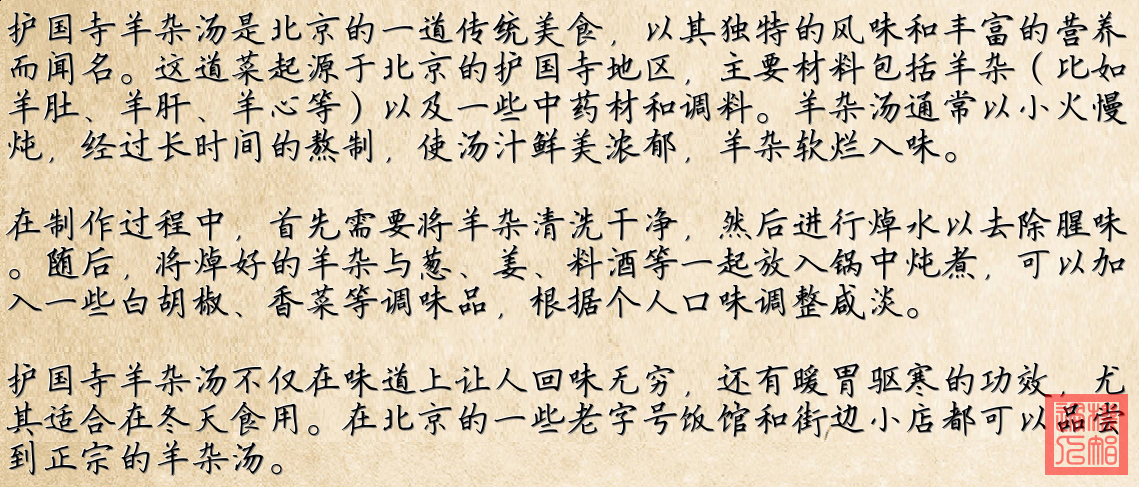 护国寺羊杂汤是北京的一道传统美食，以其独特的风味和丰富的营养
而闻名。这道菜起源于北京的护国寺地区，主要材料包括羊杂（比如
羊肚、羊肝、羊心等）以及一些中药材和调料。羊杂汤通常以小火慢
炖，经过长时间的熬制，使汤汁鲜美浓郁，羊杂软烂入味。
在制作过程中，首先需要将羊杂清洗干净，然后进行焯水以去除腥味
。随后，将焯好的羊杂与葱、姜、料酒等一起放入锅中炖煮，可以加
入一些白胡椒、香菜等调味品，根据个人口味调整咸淡。
护国寺羊杂汤不仅在味道上让人回味无穷，还有暖胃驱寒的功效，尤
其适合在冬天食用。在北京的一些老字号饭馆和街边小店都可以品尝
到正宗的羊杂汤。